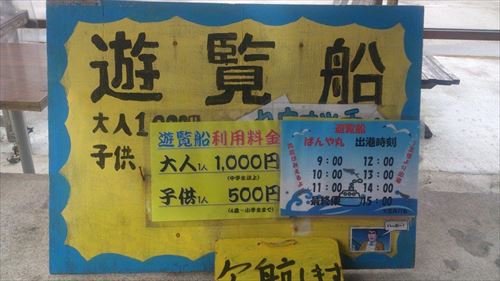 遊覧船
大人1,000円
子供
遊覧船利用料金
大人1人 1,000円
(中学生以上)
子供1人 500円
(4歳～小学生まで)
遊覧船
ばんや丸 出港時刻
9:00 12:00
10:00 13:00
11:00 14:00
最終便 15:00
欠航します